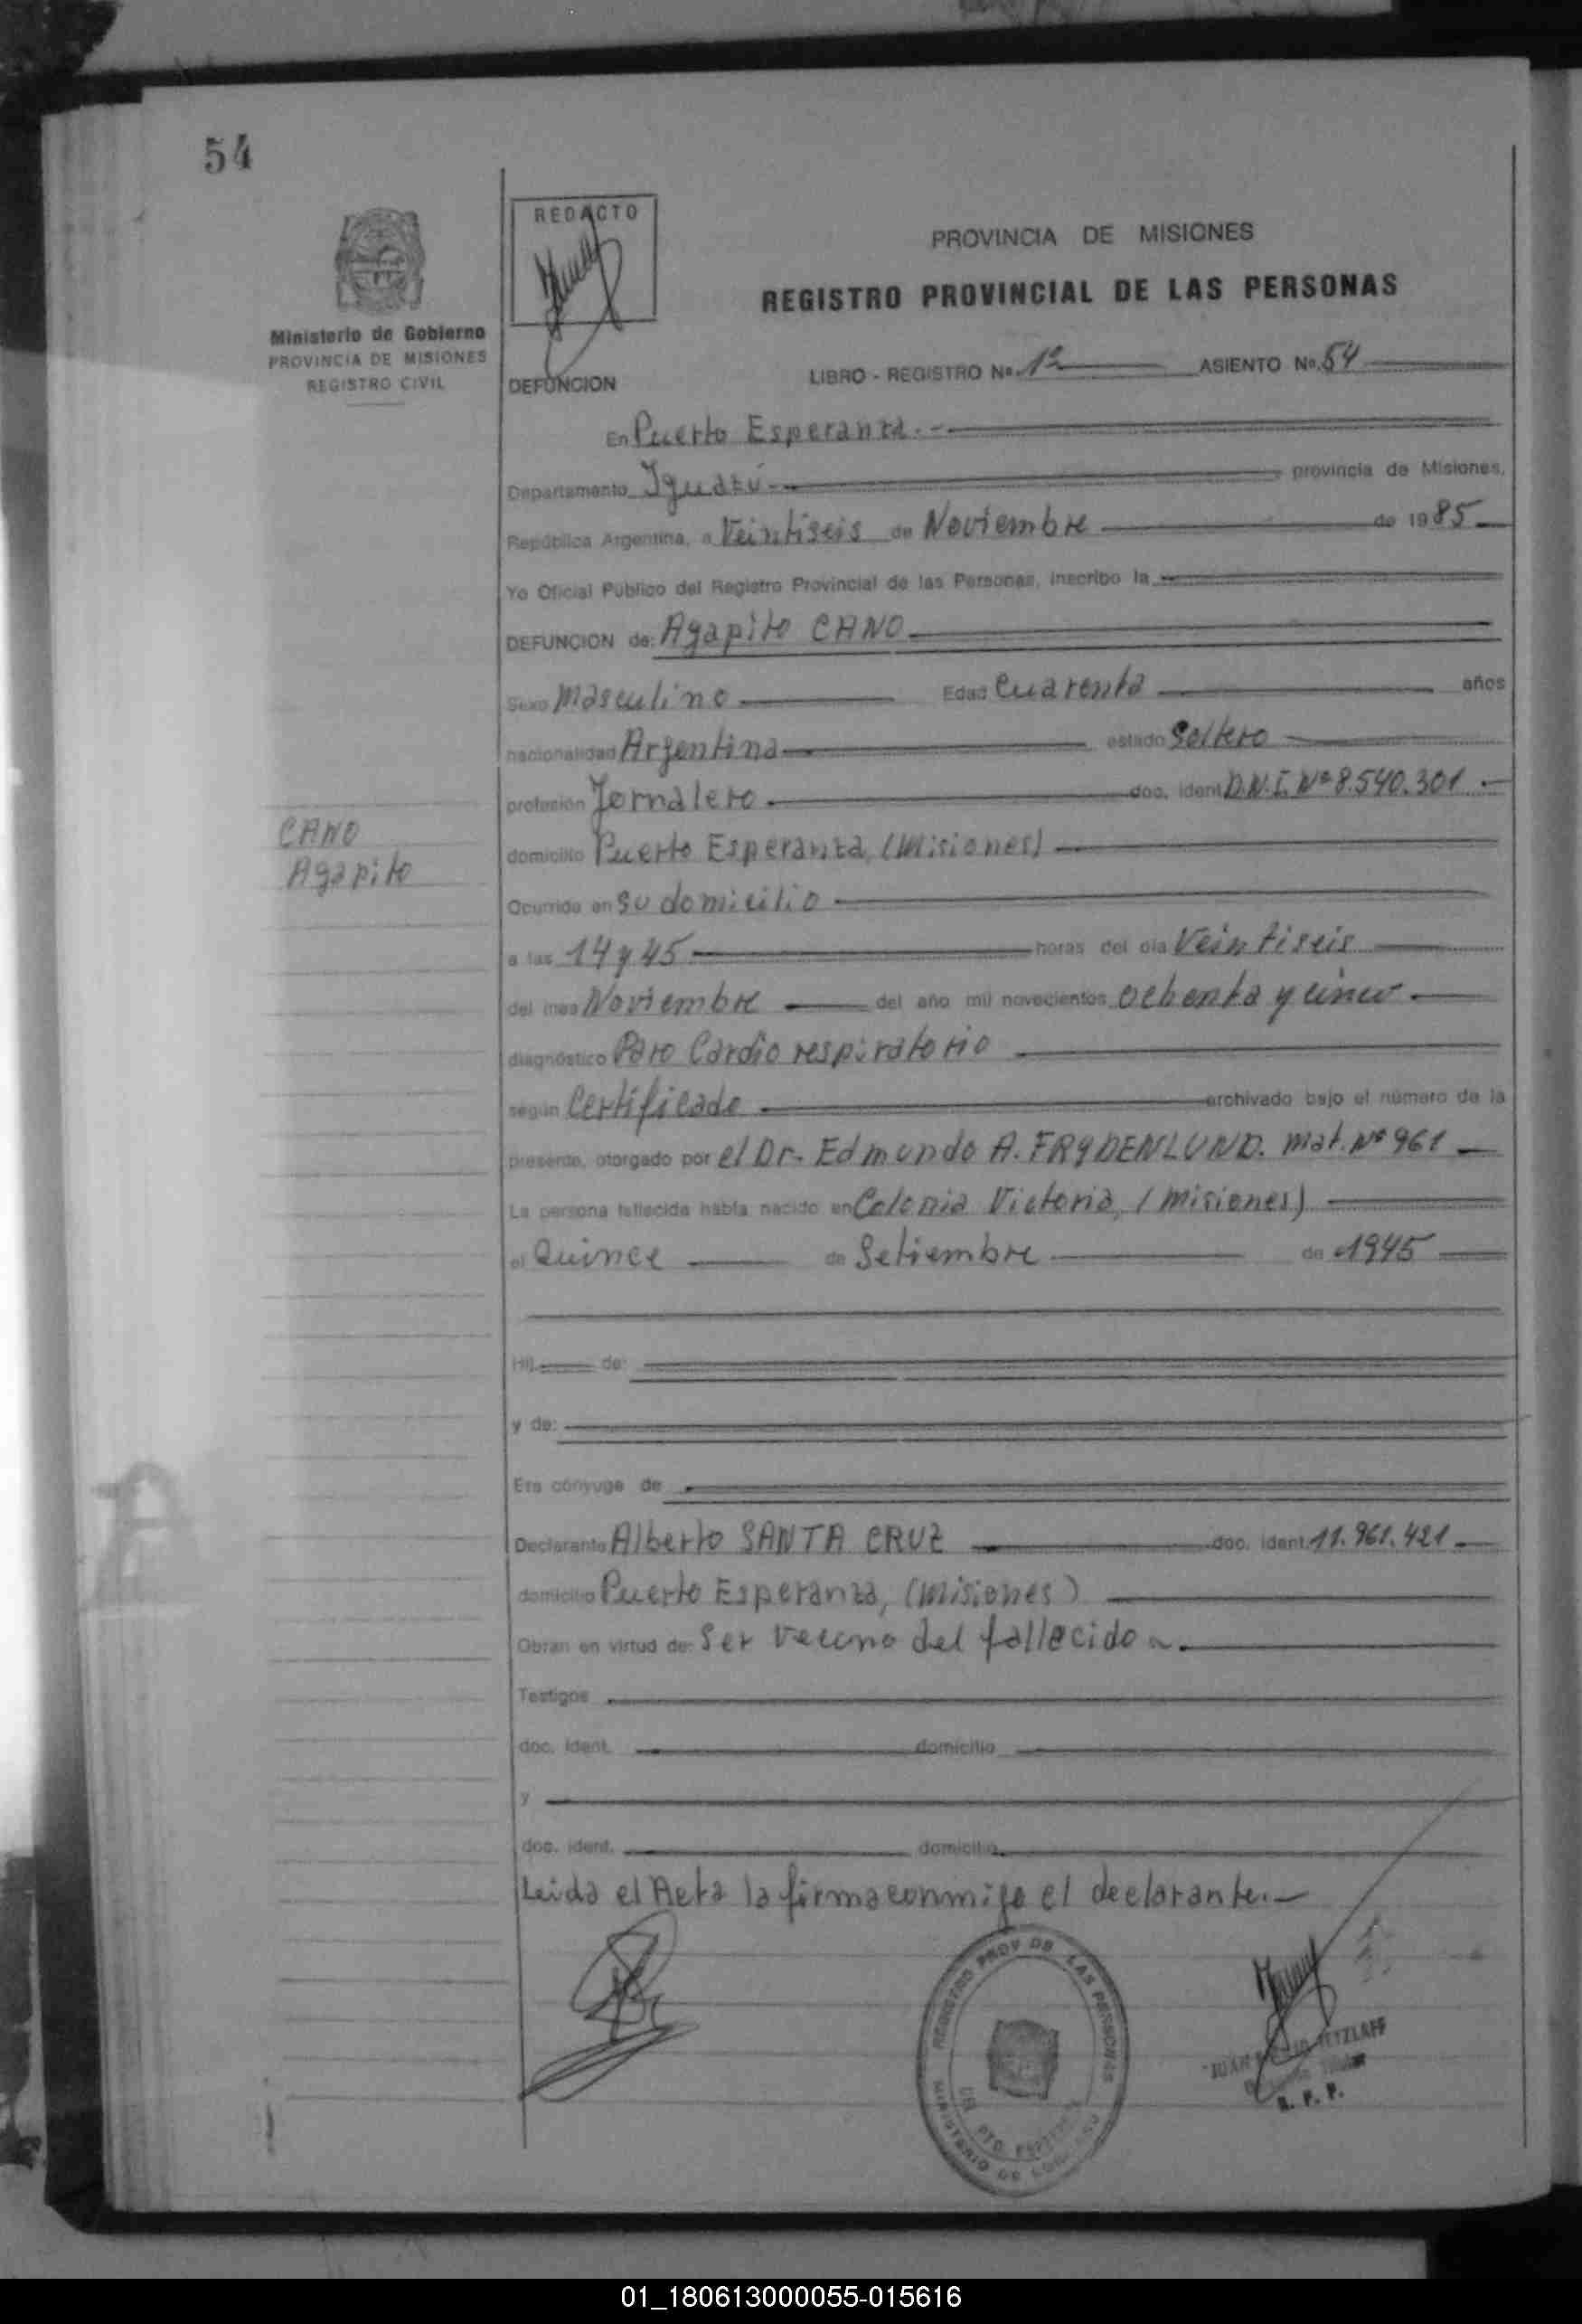 54
REDACTO
PROVINCIA DE MISIONES
REGISTRO PROVINCIAL DE LAS PERSONAS
Ministerio de Gobierno
PROVINCIA DE MISIONES
REGISTRO CIVIL
DEFUNCION
LIBRO - REGISTRO No. 1º ASIENTO No. 54
En Puerto Esperanza.-
Departamento Iguazú provincia de Misiones,
República Argentina, a Veintiseis de Noviembre de 1985
Yo Oficial Público del Registro Provincial de las Personas, inscribo la
DEFUNCION de: Agapito CANO
Sexo Masculino Edad Cuarenta años
nacionalidad Argentina estado Soltero
profesión Jornalero doc. ident. D.N.I. Nº 8.540.301
CANO
Agapito
domicilio Puerto Esperanza, (Misiones)
Ocurrida en su domicilio
a las 14 y 45 horas del día Veintiseis
del mes Noviembre del año mil novecientos ochenta y cinco
diagnóstico Paro Cardio respiratorio
según Certificado archivado bajo el número de la
presente, otorgado por el Dr. Edmundo A. FRYDENLUND. Mat. Nº 961
La persona fallecida había nacido en Colonia Victoria, (Misiones)
el Quince de Setiembre de 1945
Hij de:
y de:
Era cónyuge de
Declarante Alberto SANTA CRUZ doc. ident. 11.961.421
domicilio Puerto Esperanza, (Misiones)
Obran en virtud de: Ser vecino del fallecido
Testigos
doc. ident. domicilio
y
doc. ident. domicilio
Leida el Acta la firma conmigo el declarante.-
REGISTRO PROV DE LAS PERSONAS
MINISTERIO DE
PTO.
JUAN
R. P. P.
01_180613000055-015616